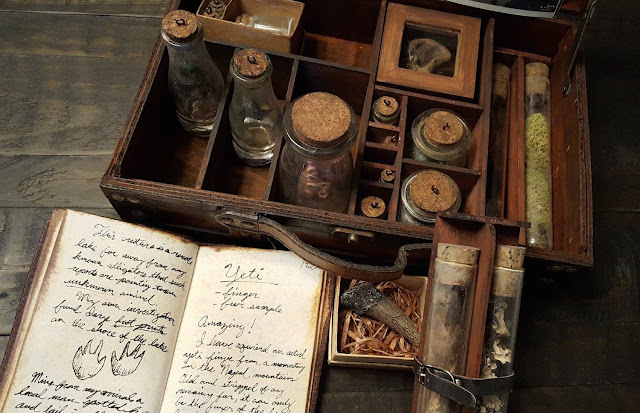 This creature is a
lake far away from any
known alligators that such
reports are pointing to an
unknown animal.
My own investigation
found large foot prints
on the shore of the lake
Mine from my arrival a
local man spotted
and tail
Yeti
- finger
- fur sample
Amazing!
I have acquired an actual
yeti finger from a monastery
in the Nepal mountains
Old and stripped of any
remaining fur, it can only
be the finger of the